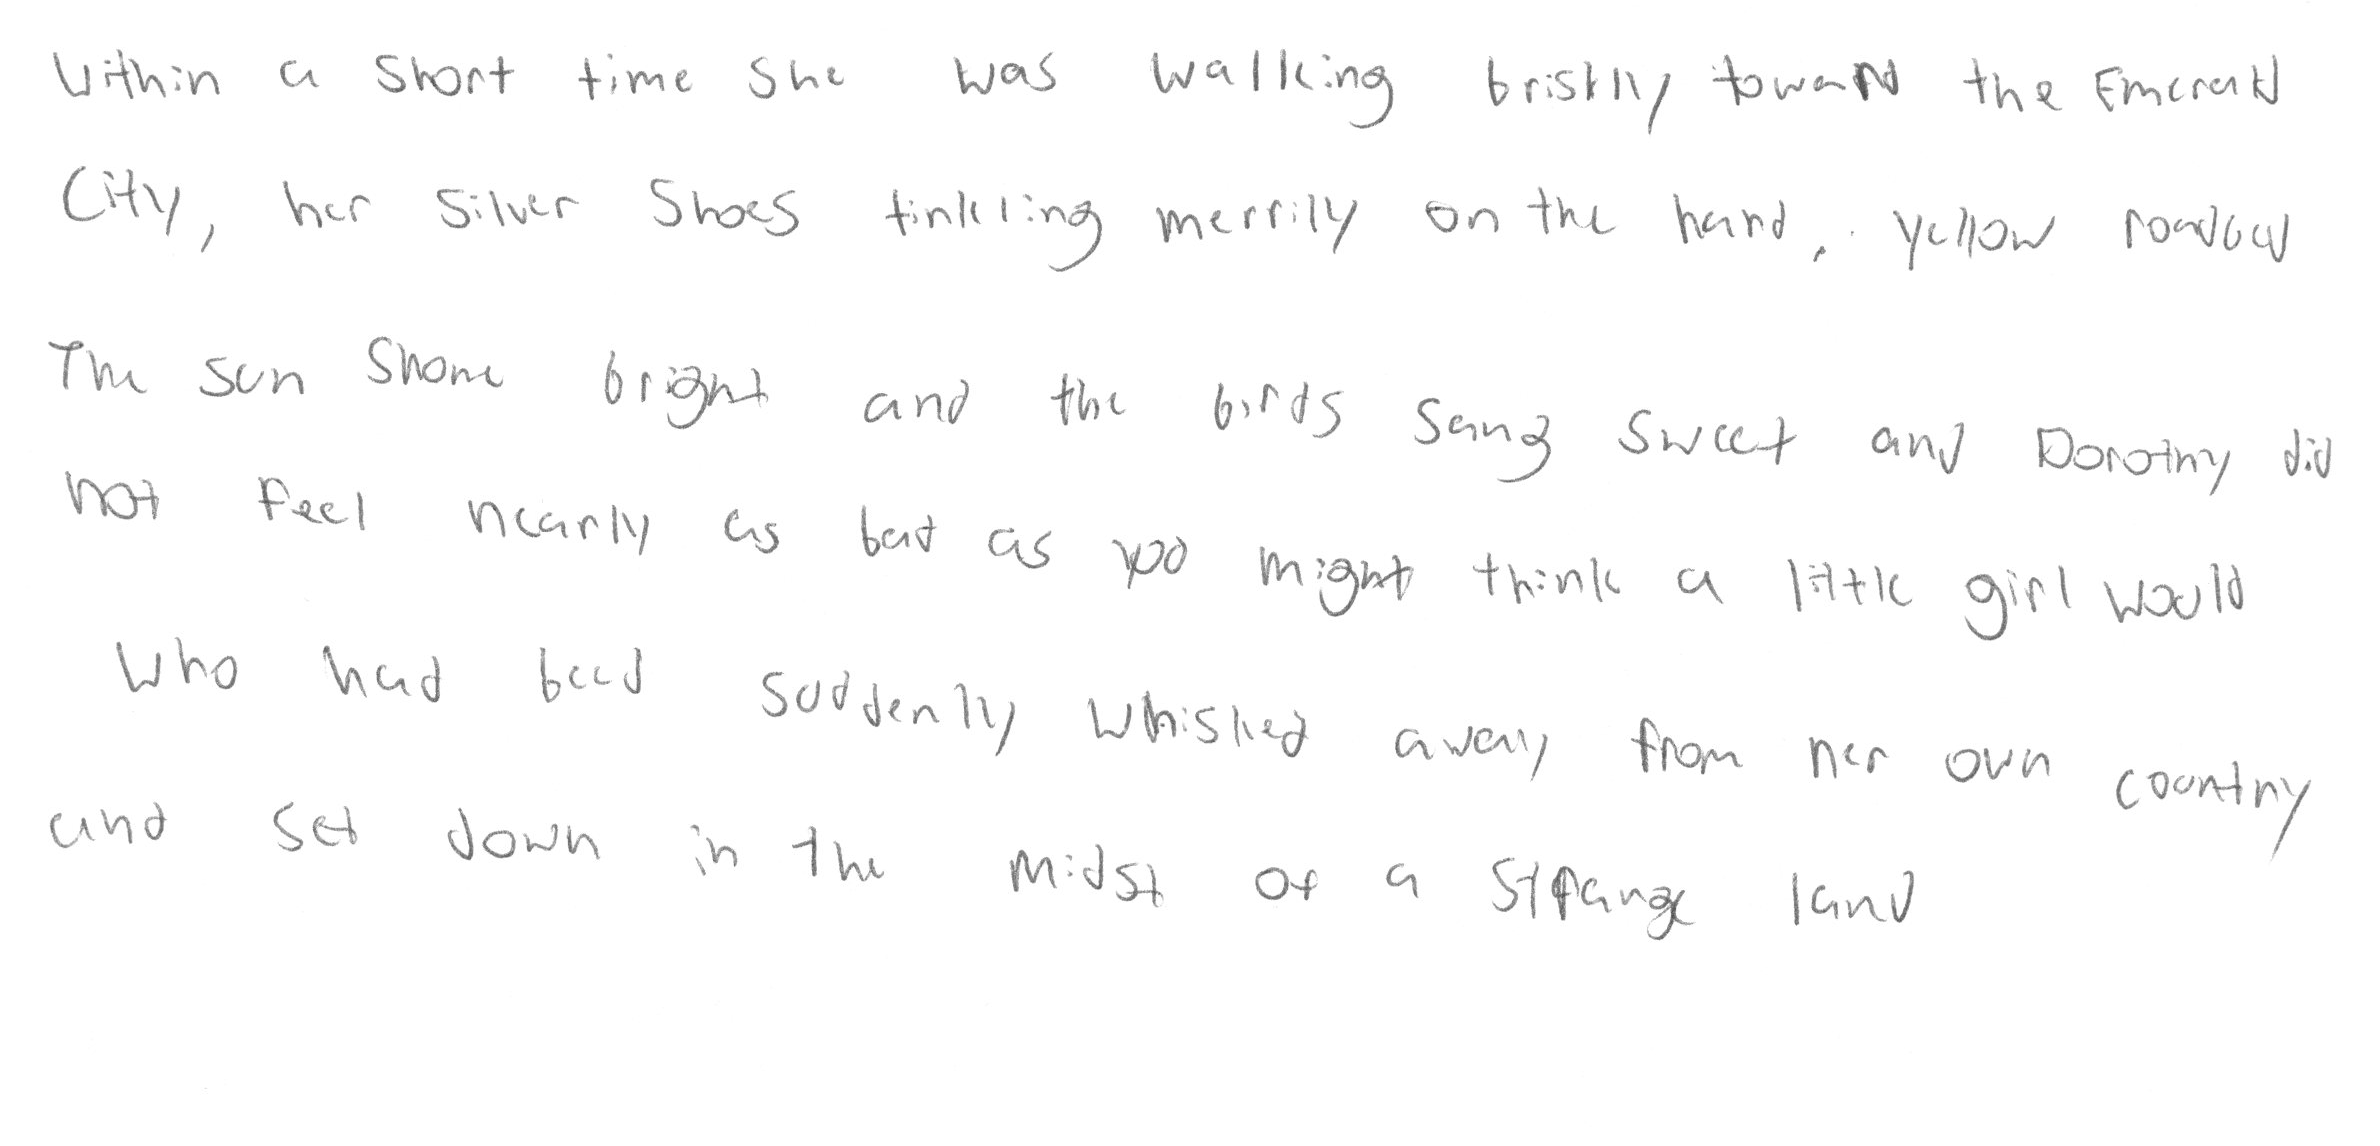 Within a short time she was walking briskly toward the Emerald
City, her Silver Shoes tinkling merrily on the hard, yellow roadbed
The sun shone bright and the birds sang sweet and Dorothy did
not feel nearly as bad as you might think a little girl would
who had beed suddenly whisked away from her own country
and set down in the midst of a strange land